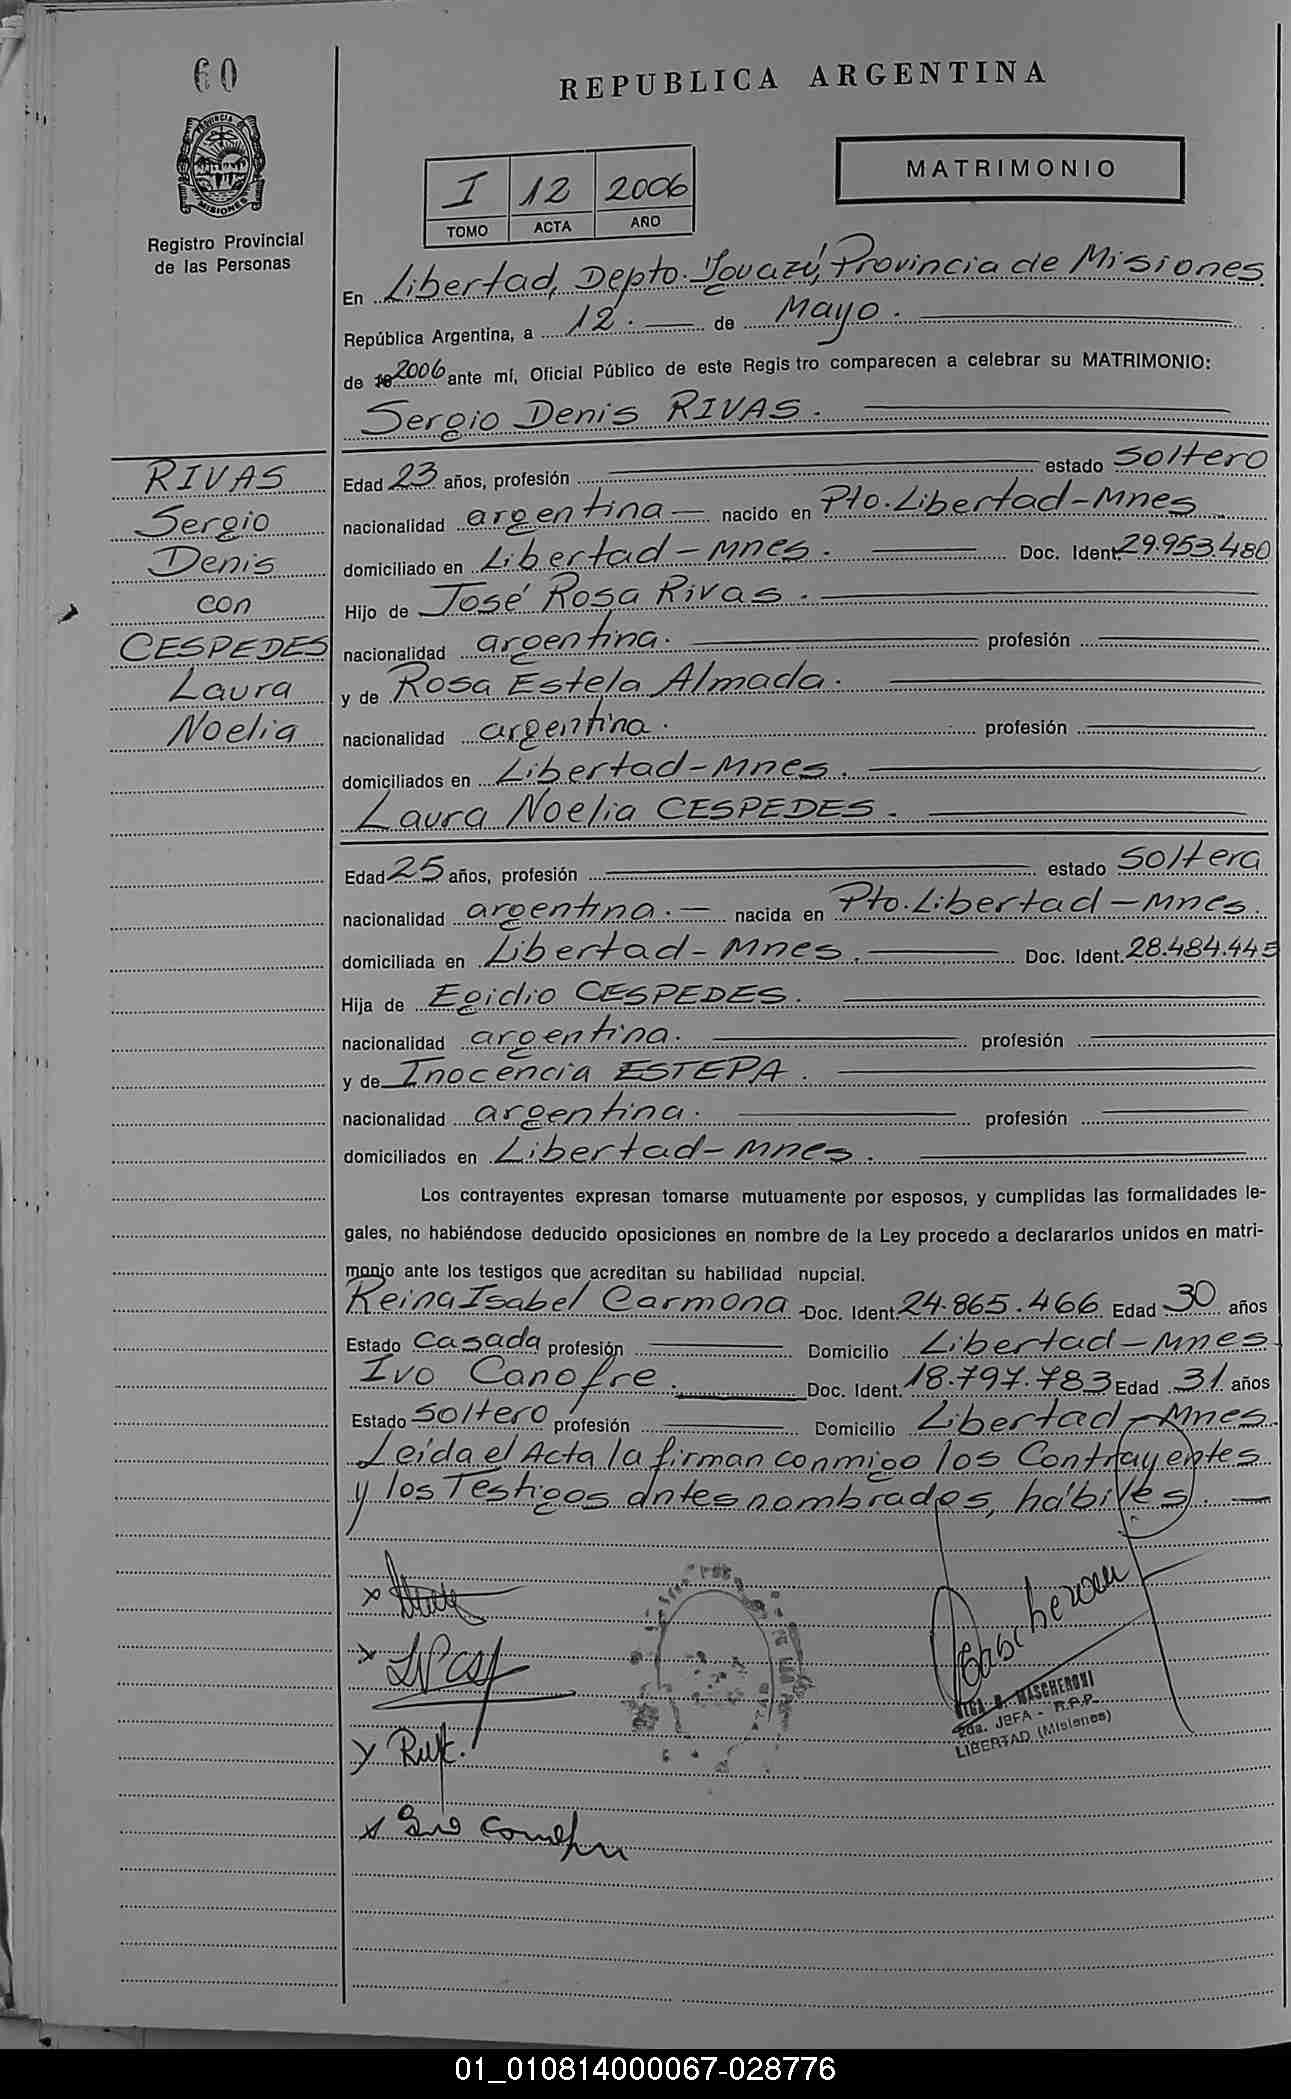 60
REPUBLICA ARGENTINA
PROVINCIA DE
MISIONES
Registro Provincial
de las Personas
MATRIMONIO
I 12 2006
TOMO ACTA AÑO
En Libertad, Depto. Iguazú, Provincia de Misiones
República Argentina, a 12. de Mayo.
de 2006 ante mí, Oficial Público de este Regis tro comparecen a celebrar su MATRIMONIO:
Sergio Denis RIVAS.
RIVAS
Sergio
Denis
con
CESPEDES
Laura
Noelia
Edad 23 años, profesión estado Soltero
nacionalidad argentina nacido en Pto. Libertad-Mnes
domiciliado en Libertad-Mnes. Doc. Ident. 29.953.480
Hijo de José Rosa Rivas.
nacionalidad argentina. profesión
y de Rosa Estela Almada.
nacionalidad argentina. profesión
domiciliados en Libertad-Mnes.
Laura Noelia CESPEDES.
Edad 25 años, profesión estado Soltera
nacionalidad argentina. nacida en Pto. Libertad-Mnes.
domiciliada en Libertad-Mnes. Doc. Ident. 28.484.445
Hija de Egidio CESPEDES.
nacionalidad argentina. profesión
y de Inocencia ESTEPA.
nacionalidad argentina. profesión
domiciliados en Libertad-Mnes.
Los contrayentes expresan tomarse mutuamente por esposos, y cumplidas las formalidades le-
gales, no habiéndose deducido oposiciones en nombre de la Ley procedo a declararlos unidos en matri-
monio ante los testigos que acreditan su habilidad nupcial.
Reina Isabel Carmona Doc. Ident. 24.865.466 Edad 30 años
Estado Casada profesión Domicilio Libertad-Mnes
Ivo Canofre. Doc. Ident. 18.797.783 Edad 31 años
Estado Soltero profesión Domicilio Libertad-Mnes.
Leída el Acta la firman conmigo los Contrayentes
y los Testigos antes nombrados, hábiles.
MASCHERONI
2da. JEFA - R.P.P.
LIBERTAD (Misiones)
01_010814000067-028776